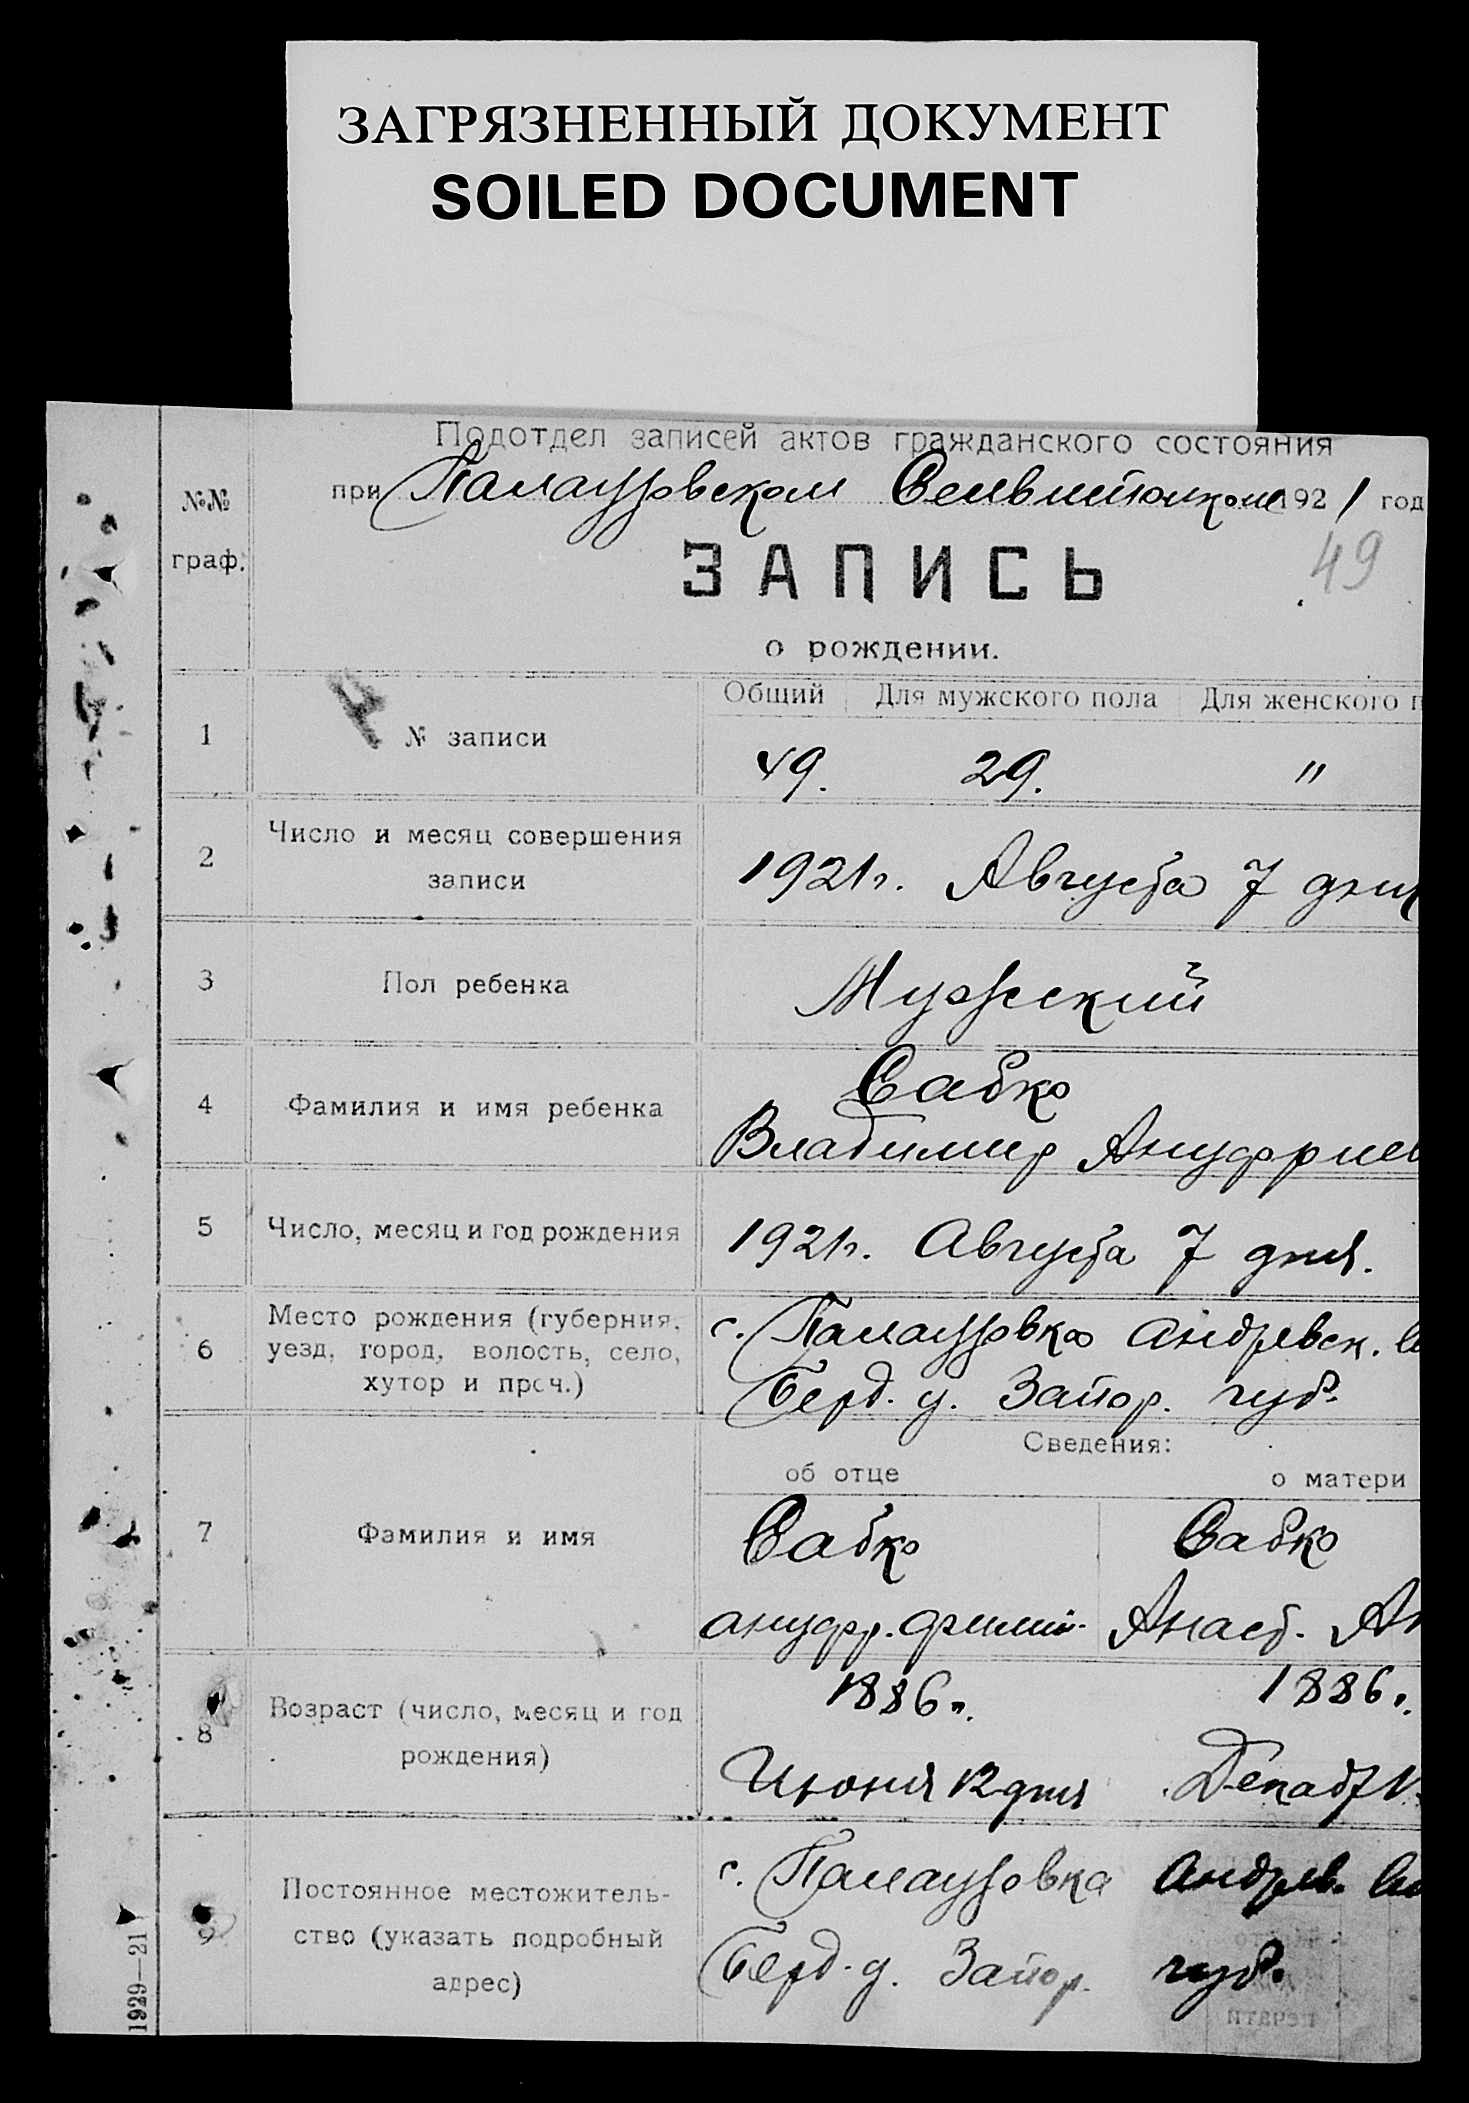 ЗАГРЯЗНЕННЫЙ ДОКУМЕНТ
SOILED DOCUMENT
Подотдел записей актов гражданского состояния
при Палаузовском 1921 год
№№ граф.
ЗАПИСЬ
49
о рождении.
Общий Для мужского пола Для женского п
1 № записи 49. 29. "
2 Число и месяц совершения
записи
1921г. Августа 7 дня
3 Пол ребенка Мужский
4 Фамилия и имя ребенка
Сабко
Владимир Ануфриев
5 Число, месяц и год рождения 1921г. Августа 7 дня.
6 Место рождения (губерния,
уезд, город, волость, село,
хутор и проч.)
с. Палаузовка Андревск.
Берд. у. Запор. губ.
Сведения:
об отце о матери
7 Фамилия и имя
Сабко Сабко
ануфр. Анаст. Ан
8 Возраст (число, месяц и год
рождения)
1886г. 1886г.
Июня 12 дня
9 Постоянное местожитель-
ство (указать подробный
адрес)
с. Палаузовка Андрев.
Берд. у. Запор. губ.
1929—21
печати